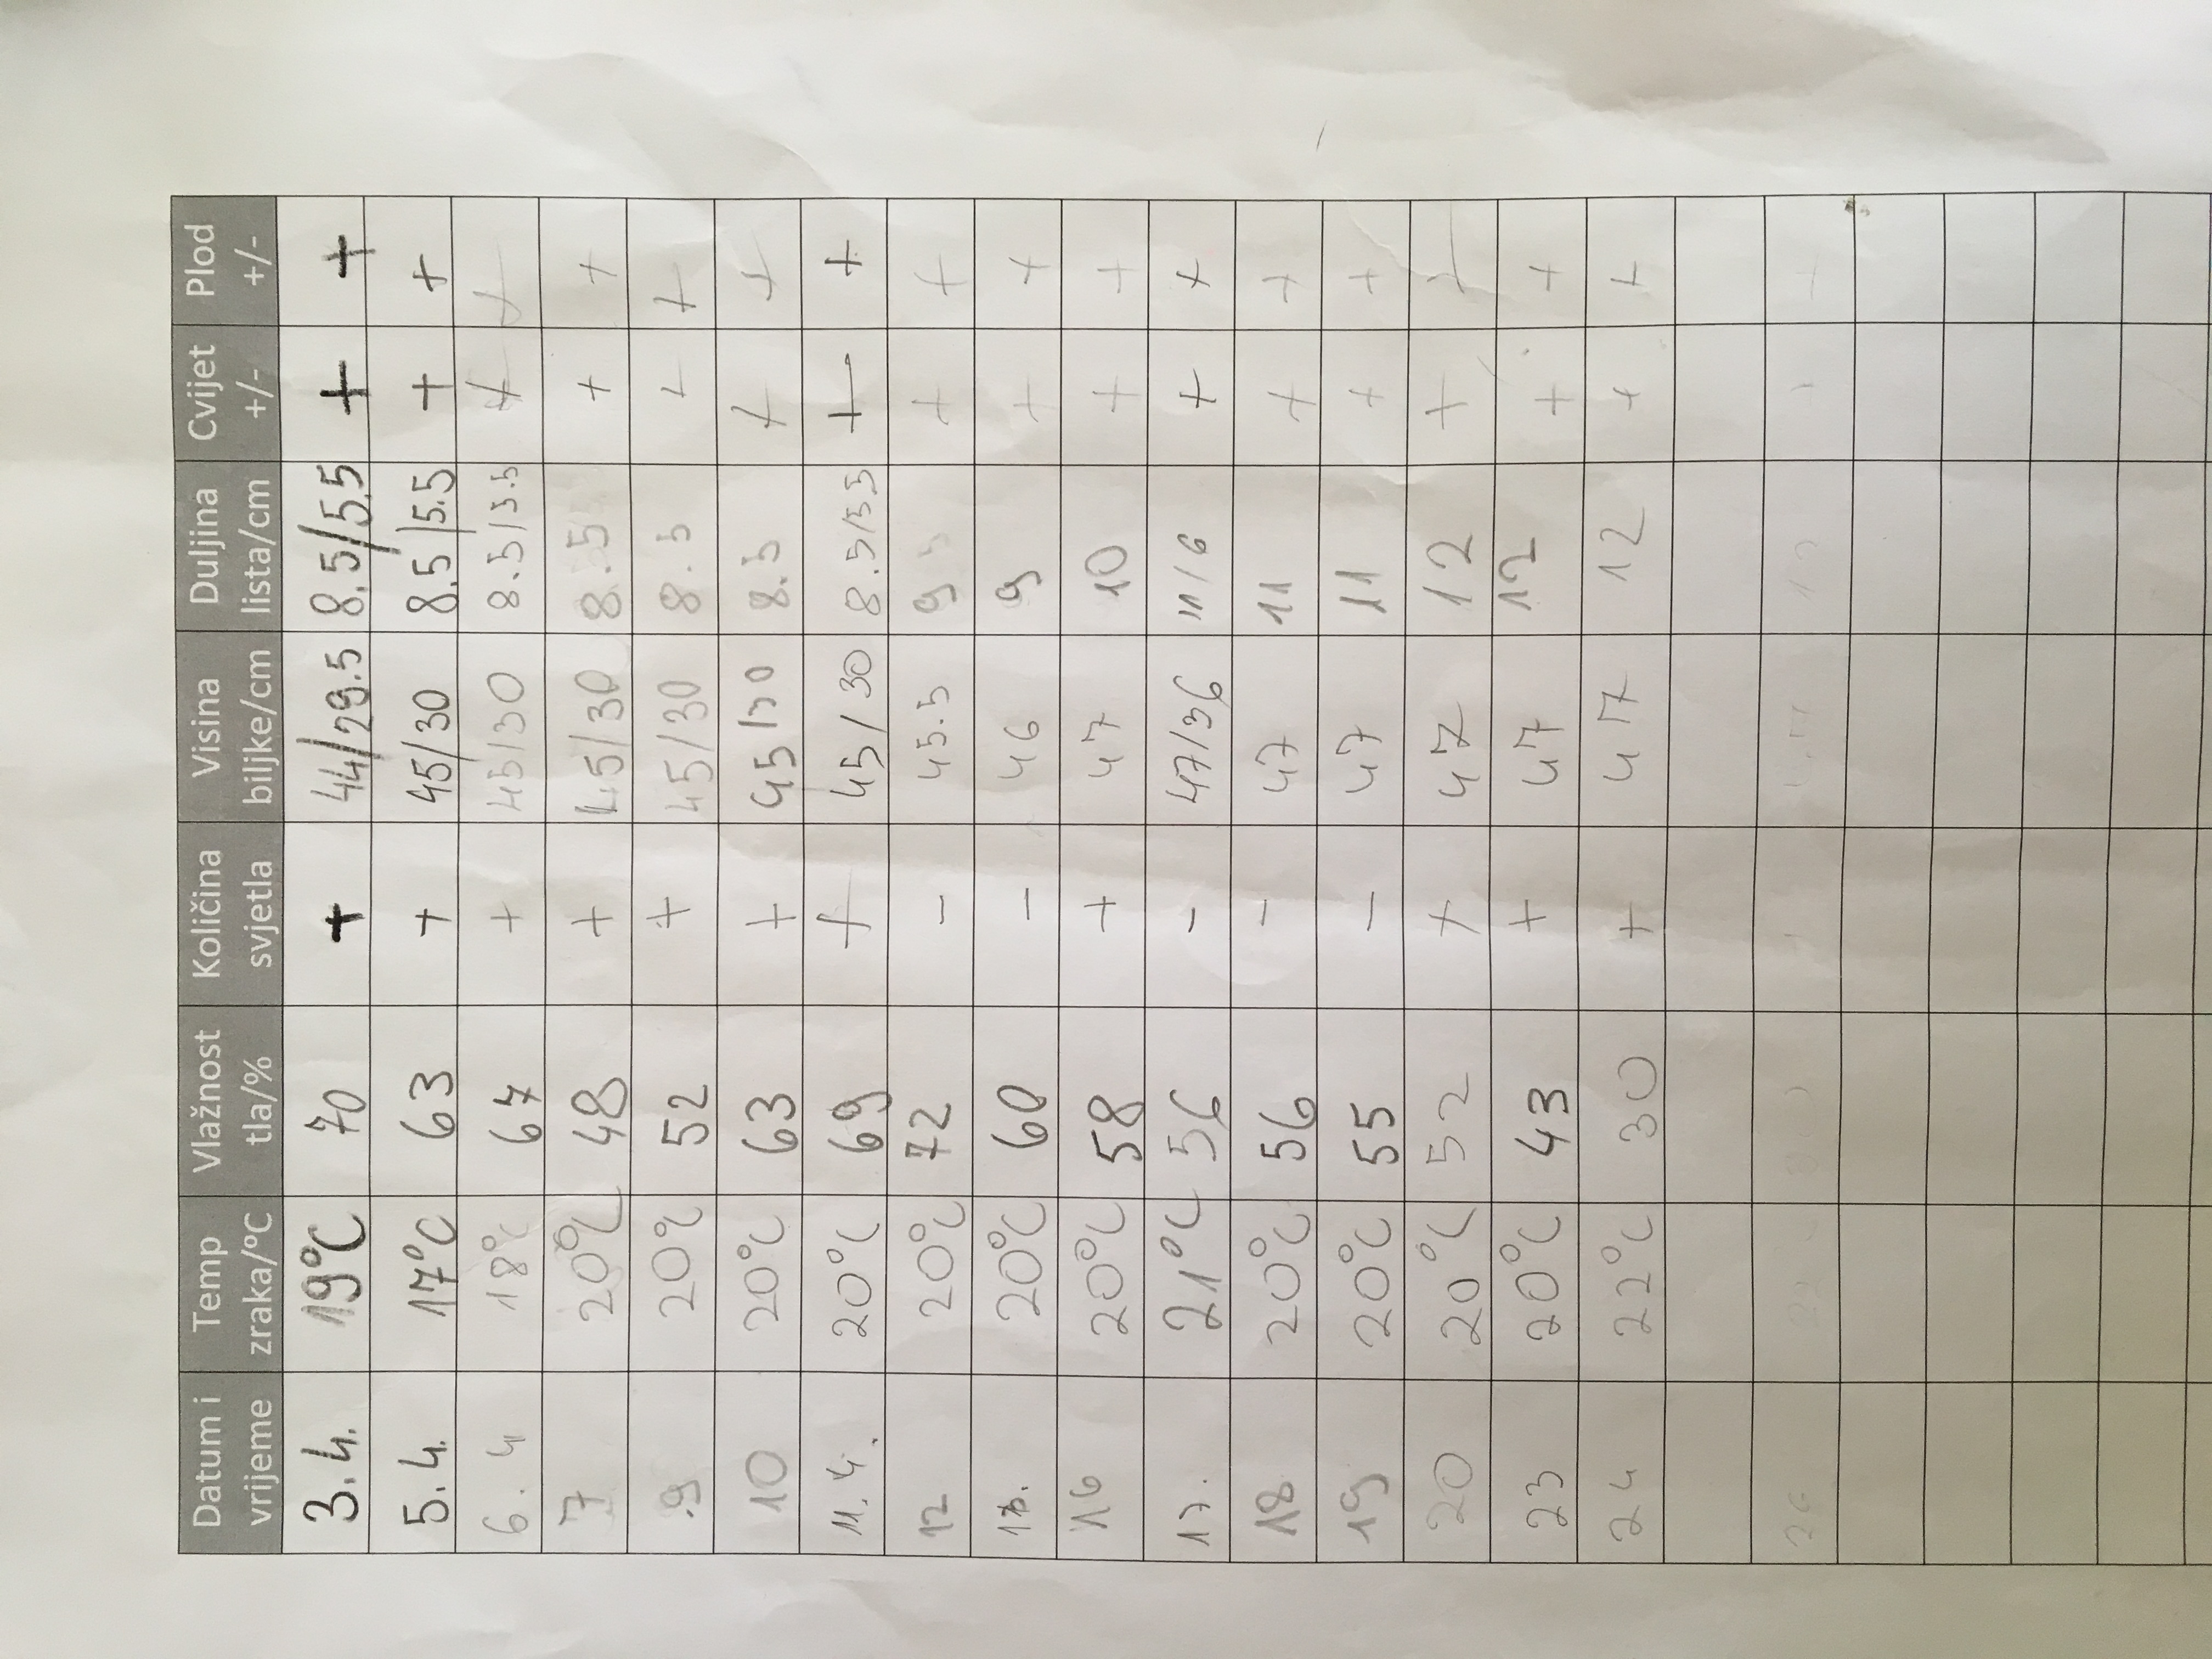 Datum i vrijeme Temp zraka/°C Vlažnost tla/% Količina svjetla Visina biljke/cm Duljina lista/cm Cvijet +/- Plod +/-
3.4. 19°C 70 + 44/29.5 8.5/5.5 + +
5.4. 17°C 63 + 45/30 8.5/5.5 + +
6.4 18°C 67 + 45/30 8.5/5.5 + +
7 20°C 48 + 45/30 8.5 + +
9 20°C 52 + 45/30 8.5 + +
10 20°C 63 + 45/30 8.5 + +
11.4. 20°C 69 + 45/30 8.5/5.5 + +
12 20°C 72 - 45.5 + +
20°C 60 - 46 9 + +
16 20°C 58 + 47 10 + +
17. 21°C 56 - 47/36 11/6 + +
18 20°C 56 - 47 11 + +
19 20°C 55 - 47 11 + +
20 20°C 52 + 47 12 + +
23 20°C 43 + 47 12 + +
24 22°C 30 + 47 12 + +
26